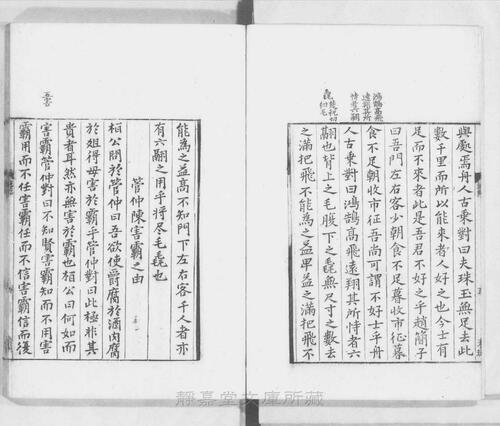 鴻鵠高飛
遠翔其所
恃者六翮
毳㲝祝切
細毛
與處焉舟人古乘對曰夫珠玉無足去此
數千里而所以能來者人好之也今士有
足而不來者此是吾君不好之乎趙簡子
曰吾門左右客千人朝食不足暮收市征暮
食不足朝收市征吾尚可謂不好士乎舟
人古乘對曰鴻鵠高飛遠翔其所恃者六
翮也背上之毛腹下之毳無尺寸之數去
之滿把飛不能為之益卑益之滿把飛不
能為之益高不知門下左右客千人者亦
有六翮之用乎將尽毛毳也
管仲陳害霸之由
桓公問於管仲曰吾欲使爵腐於酒肉腐
於俎得毋害於霸乎管仲對曰此極非其
貴者耳然亦無害於霸也桓公曰何如而
害霸管仲對曰不知賢害霸知而不用害
霸用而不任害霸任而不信害霸信而復
靜嘉堂文庫所藏